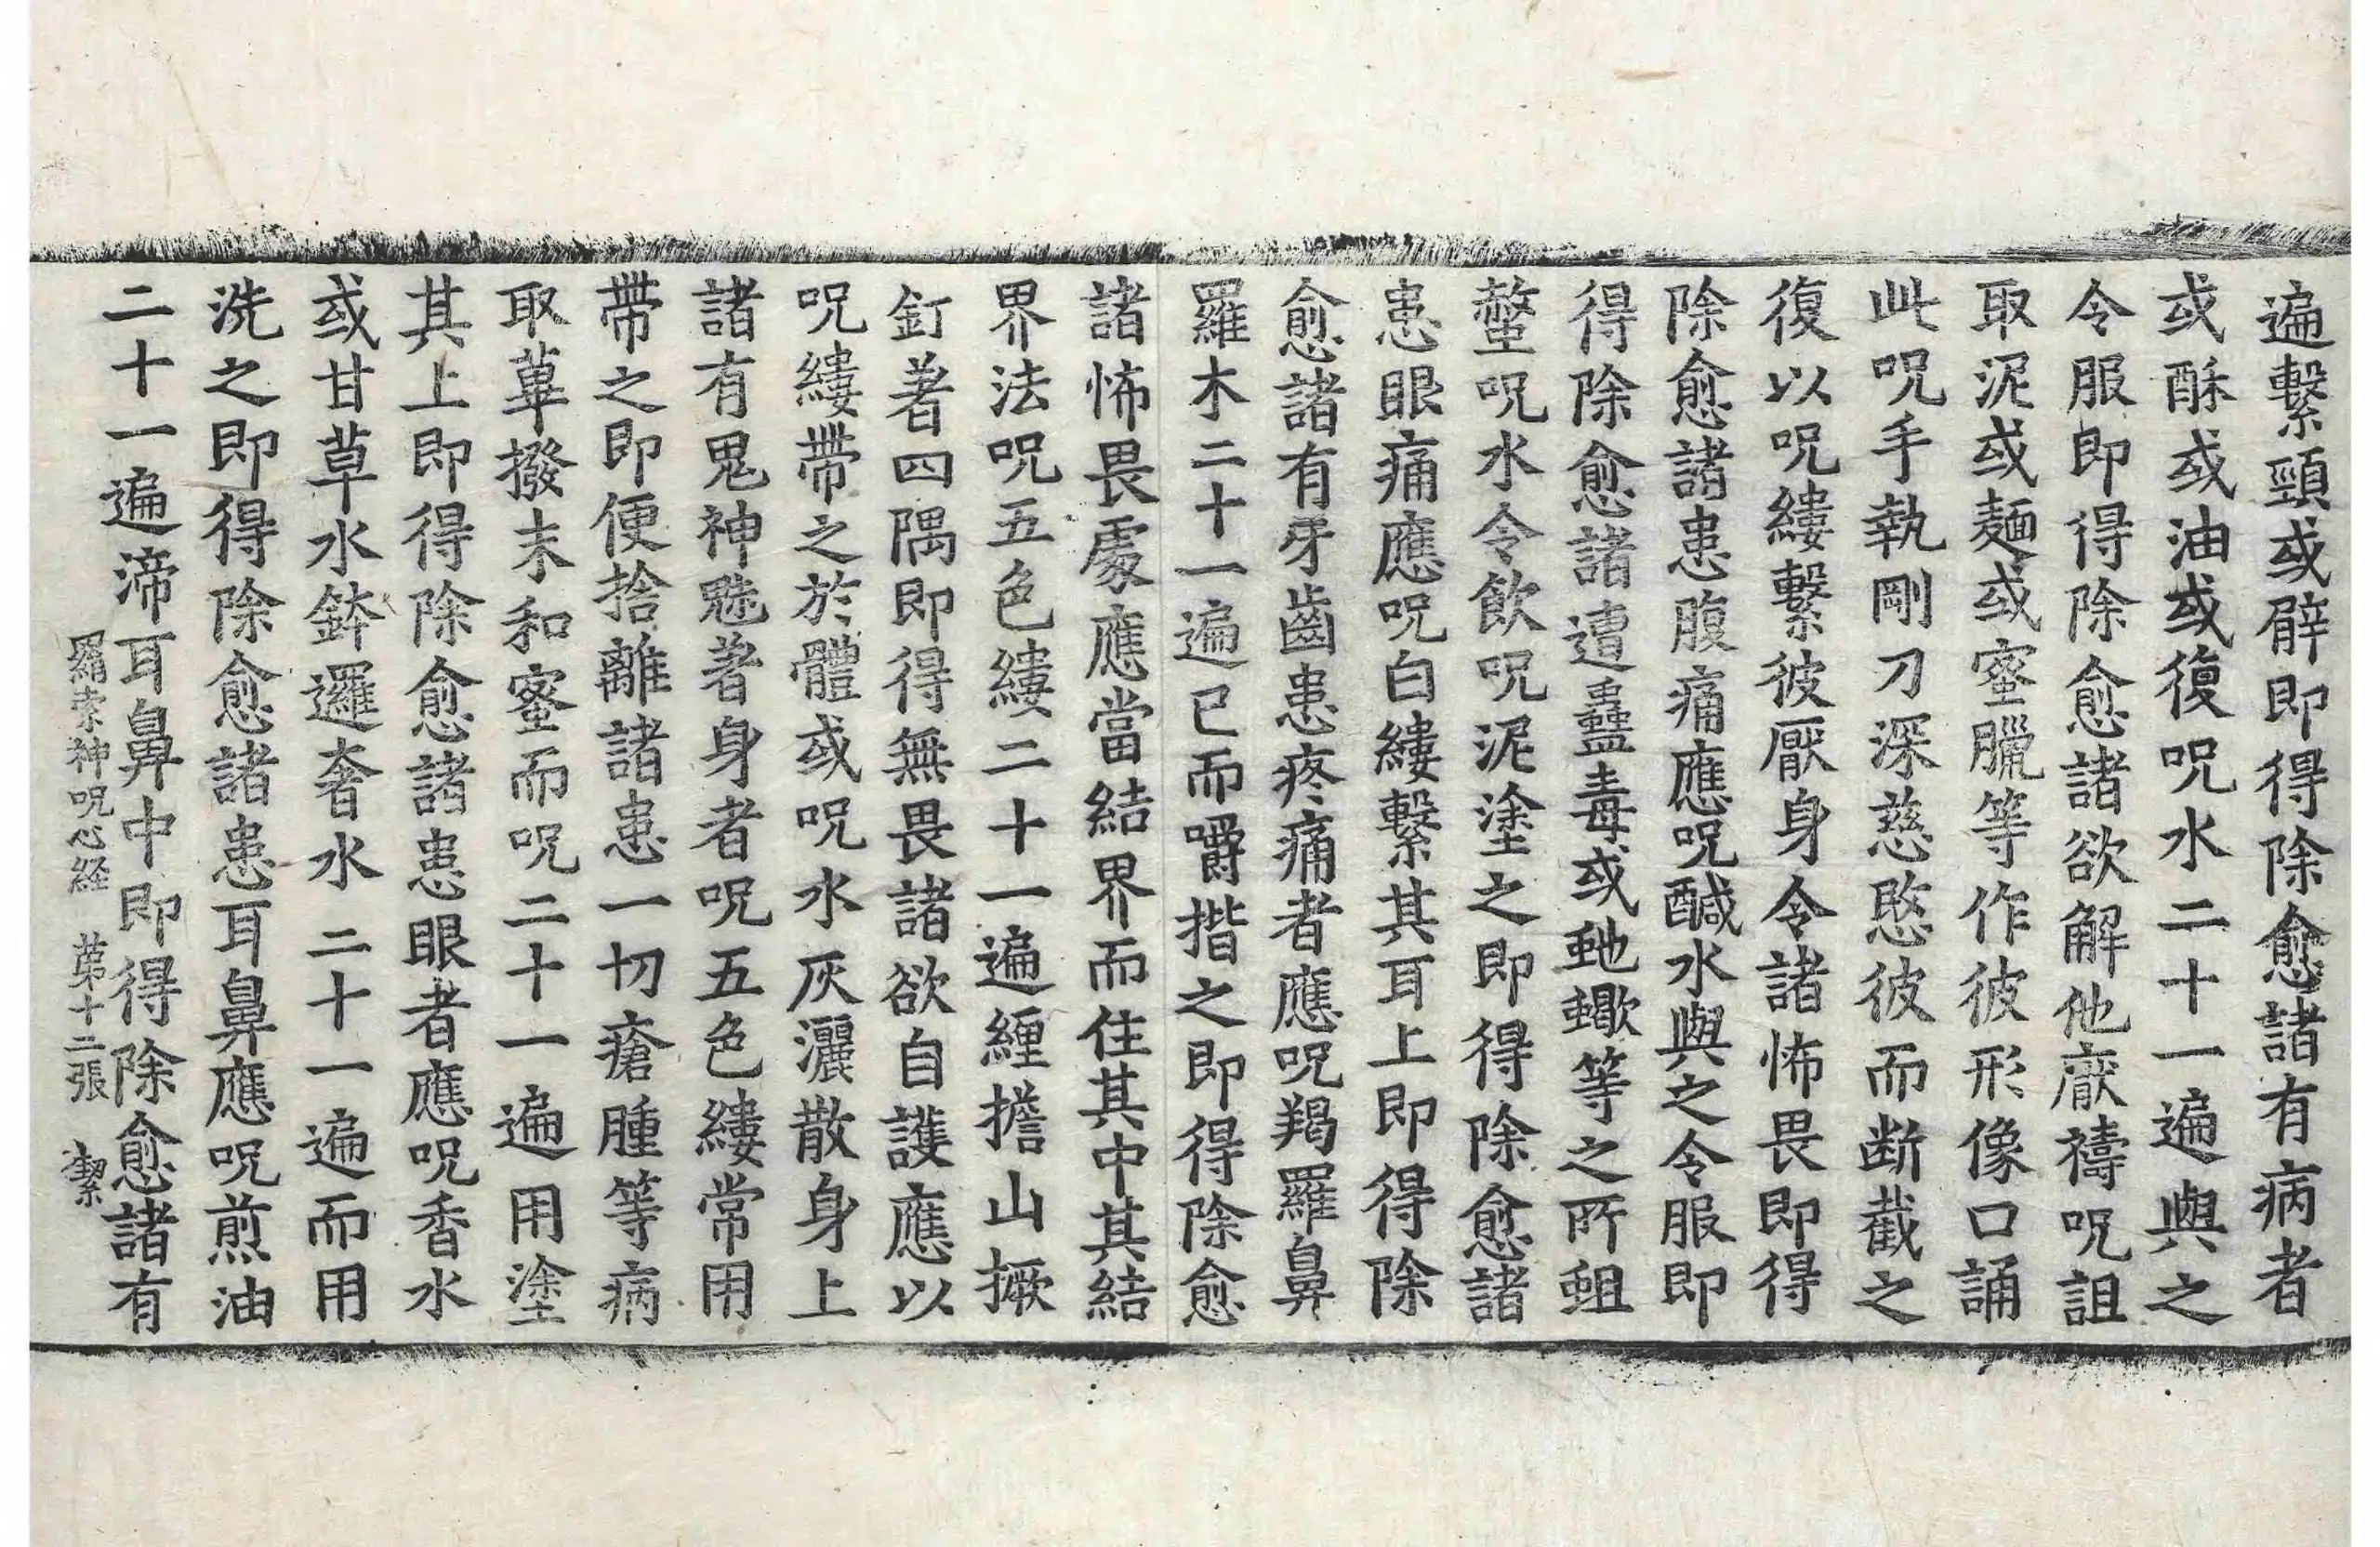 遍繫頸或臂即得除愈諸有病者
或酥或油或復呪水二十一遍與之
令服即得除愈諸欲解他厭禱呪詛
取泥或麵或蜜臘等作彼形像口誦
此呪手執剛刀深慈愍彼而断截之
復以呪縷繫彼厭身令諸怖畏即得
除愈諸患腹痛應呪醎水與之令服即
得除愈諸遭蠱毒或虵蠍等之所蛆
螫呪水令飲呪泥塗之即得除愈諸
患眼痛應呪白縷繫其耳上即得除
愈諸有牙齒患疼痛者應呪羯羅鼻
羅木二十一遍已而嚼揩之即得除愈
諸怖畏處應當結界而住其中其結
界法呪五色縷二十一遍纏擔山撅
釘著四隅即得無畏諸欲自護應以
呪縷帶之於體或呪水灰灑散身上
諸有鬼神魅著身者呪五色縷常用
帶之即便捨離諸患一切瘡腫等病
取蓽撥末和蜜而呪二十一遍用塗
其上即得除愈諸患眼者應呪香水
或甘草水鉢邏奢水二十一遍而用
洗之即得除愈諸患耳鼻應呪煎油
二十一遍渧耳鼻中即得除愈諸有
羂索神呪心経 苐十二張 潔